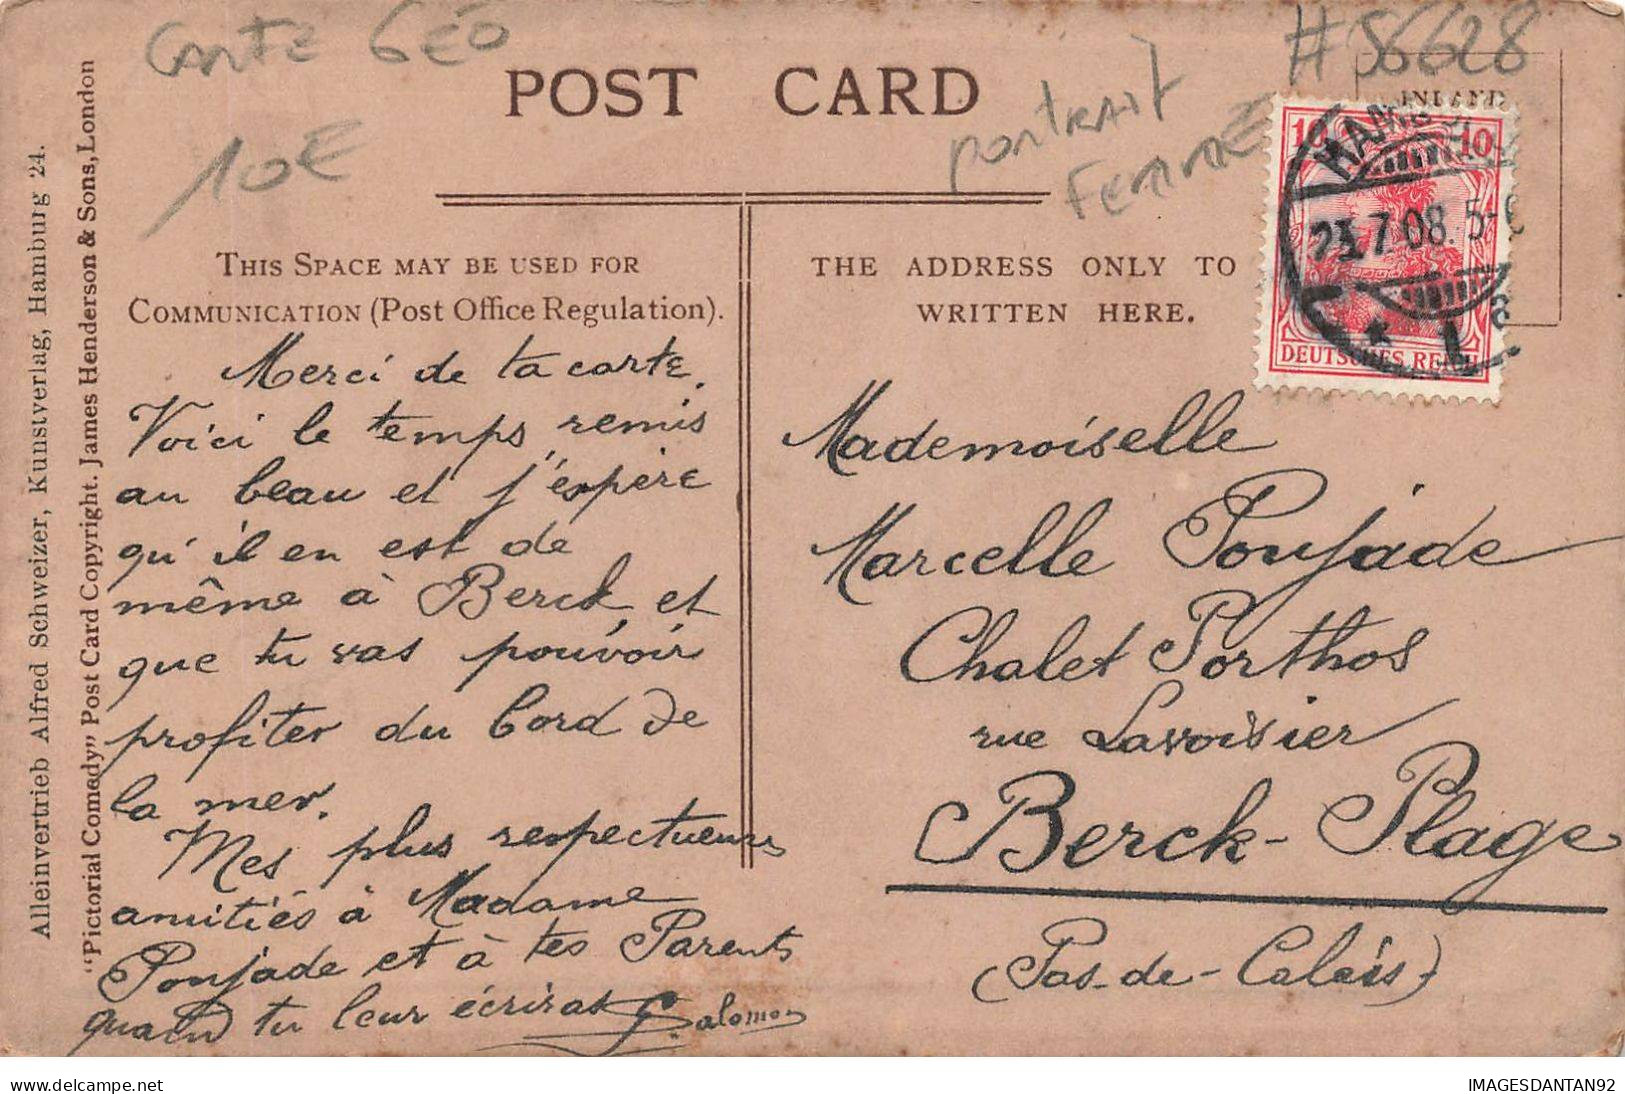 Carte GÉO
#36628
10€
portrait
Femme
POST CARD
INLAND
10 10
HAMB
23.7.08. 5-6
* 1
DEUTSCHES REICH
Alleinvertrieb Alfred Schweizer, Kunstverlag, Hamburg 24.
"Pictorial Comedy" Post Card Copyright. James Henderson & Sons, London
THIS SPACE MAY BE USED FOR
COMMUNICATION (Post Office Regulation).
Merci de ta carte.
Voici le temps remis
au beau et j'espère
qu'il en est de
même à Berck, et
que tu vas pouvoir
profiter du bord de
la mer.
Mes plus respectueuses
amitiés à Madame
Poujade et à tes Parents
quand tu leur écriras G. Salomon
THE ADDRESS ONLY TO
WRITTEN HERE.
Mademoiselle
Marcelle Poujade
Chalet Porthos
rue Lavoisier
Berck-Plage
(Pas-de-Calais)
IMAGESDANTAN92